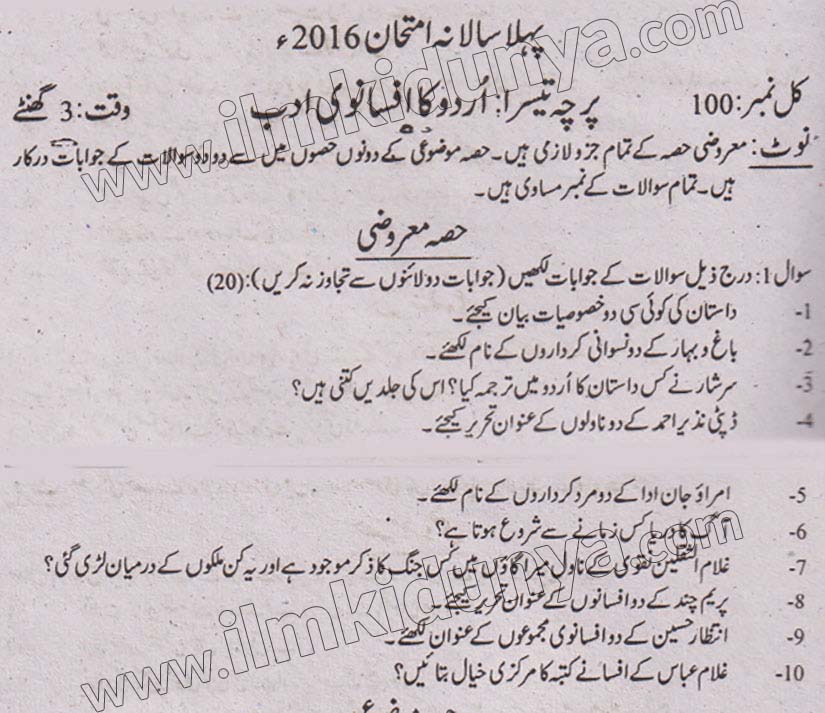 پہلا سالانہ امتحان 2016ء
کل نمبر: 100 پرچہ تیسرا: اُردو کا افسانوی ادب وقت: 3 گھنٹے
نوٹ: معروضی حصہ کے تمام جزو لازمی ہیں۔ حصہ موضوعی کے دونوں حصوں میں سے دو دو سوالات کے جوابات درکار
ہیں۔ تمام سوالات کے نمبر مساوی ہیں۔
حصہ معروضی
سوال 1: درج ذیل سوالات کے جوابات لکھیں (جوابات دو لائنوں سے تجاوز نہ کریں): (20)
1- داستان کی کوئی سی دو خصوصیات بیان کیجئے۔
2- باغ و بہار کے دو نسوانی کرداروں کے نام لکھئے۔
3- سرشار نے کس داستان کا اُردو میں ترجمہ کیا؟ اس کی جلدیں کتنی ہیں؟
4- ڈپٹی نذیر احمد کے دو ناولوں کے عنوان تحریر کیجئے۔
5- امراؤ جان ادا کے دو مرد کرداروں کے نام لکھئے۔
6- آگ کا دریا کس زمانے سے شروع ہوتا ہے؟
7- غلام الثقلین نقوی کے ناول میرا گاؤں میں کس جنگ کا ذکر موجود ہے اور یہ کن ملکوں کے درمیان لڑی گئی؟
8- پریم چند کے دو افسانوں کے عنوان تحریر کیجئے۔
9- انتظار حسین کے دو افسانوی مجموعوں کے عنوان لکھئے۔
10- غلام عباس کے افسانے کتبہ کا مرکزی خیال بتائیں؟
www.ilmkidunya.com
www.ilmkidunya.com